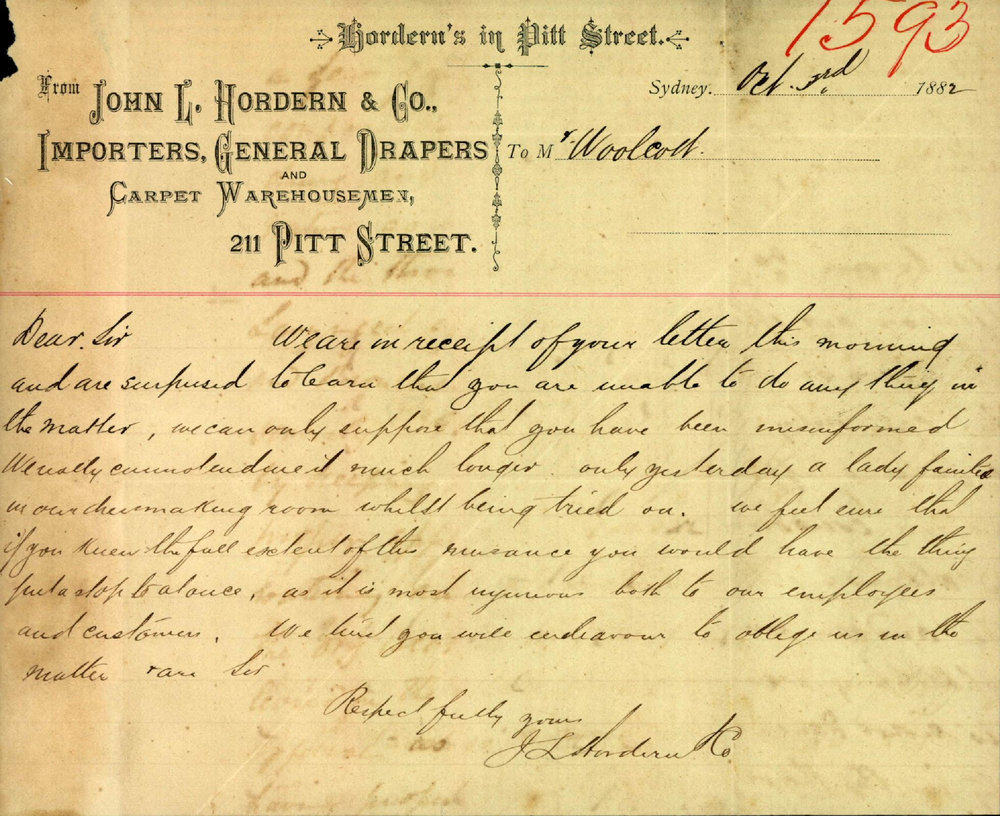 1593
Hordern's in Pitt Street.
From
JOHN L. HORDERN & CO.,
IMPORTERS, GENERAL DRAPERS
AND
CARPET WAREHOUSEMEN,
211 PITT STREET.
Sydney. Oct. 3rd 1882
To Mr Woolcott.
Dear Sir We are in receipt of your letter this morning
and are surprised to learn that you are unable to do any thing in
the matter, we can only suppose that you have been misinformed
We really cannot endure it much longer. only yesterday a lady fainted
in our dressmaking room whilst being tried on. we feel sure that
if you knew the full extent of this nuisance you would have the thing
put a stop to at once, as it is most injurious both to our employees
and customers. We trust you will endeavour to oblige us in the
matter & are Sir
Respectfully yours
J L Hordern & Co